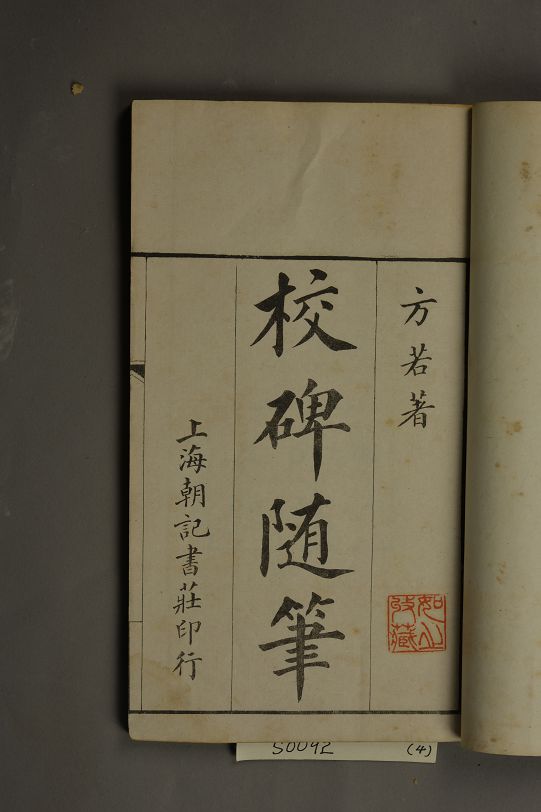 方若著
校碑随筆
上海朝記書莊印行
S0092 (4)